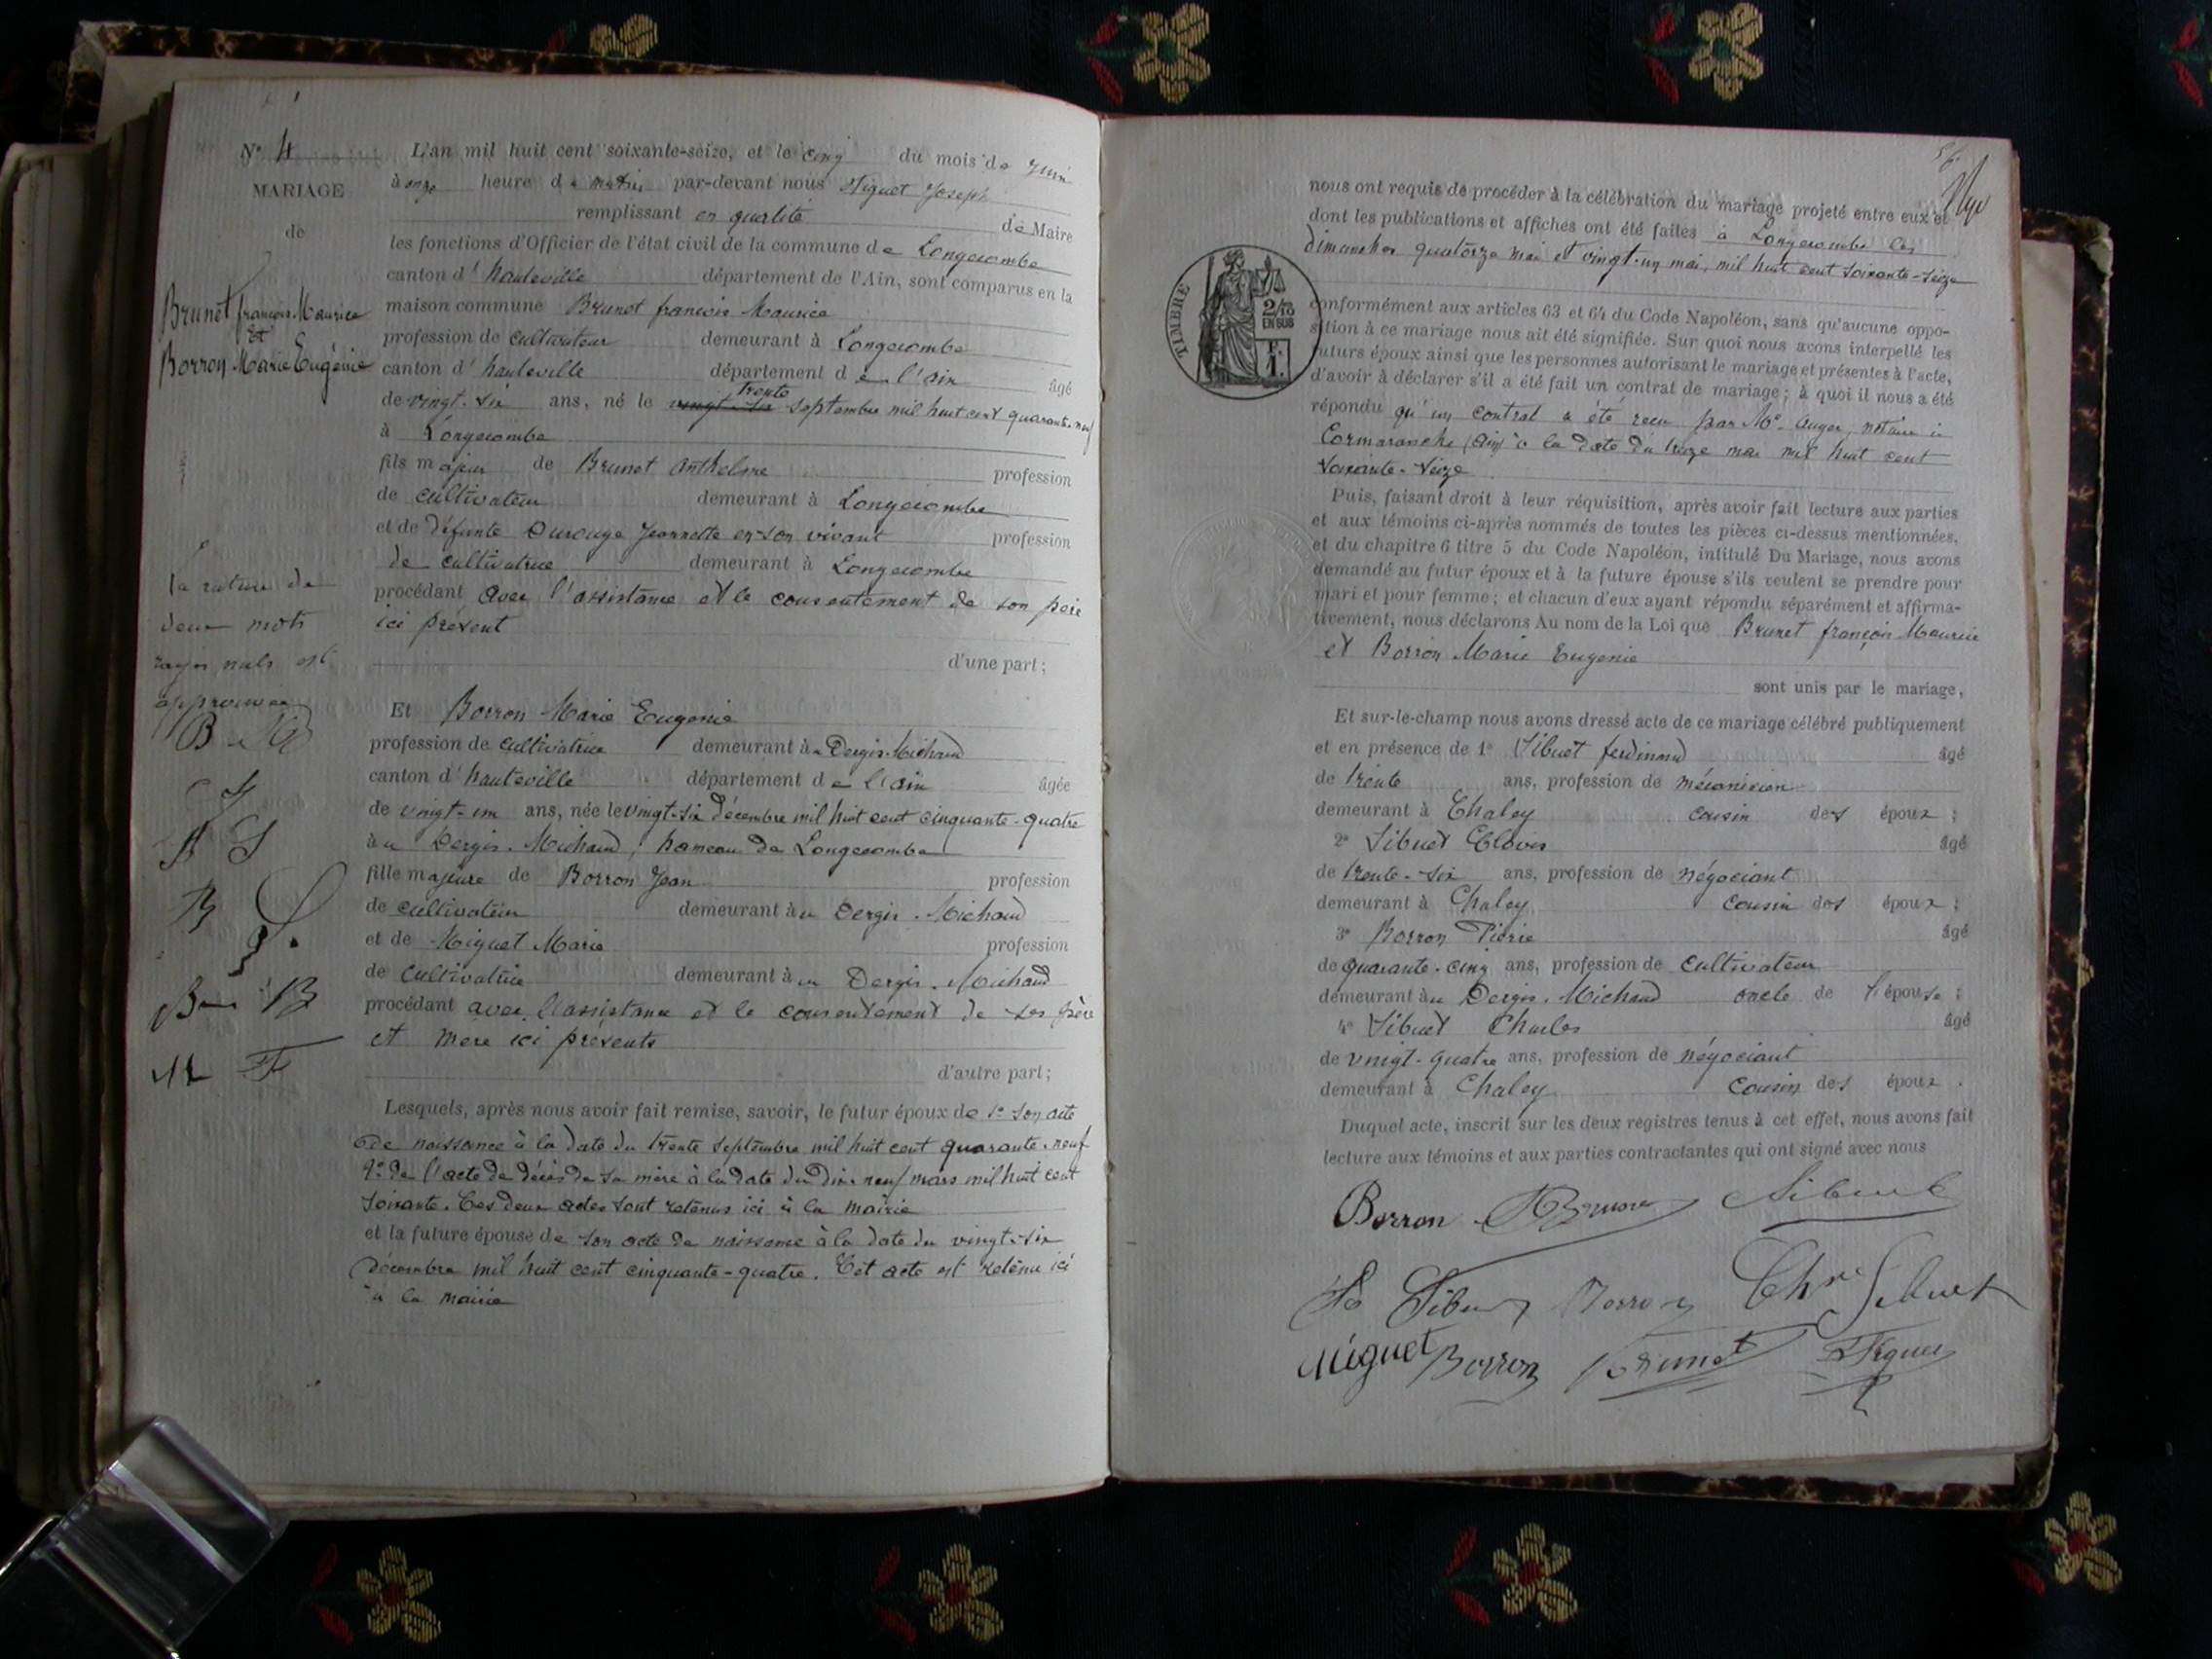 N° 4
MARIAGE
de
Brunet françois Maurice
Et
Borron Marie Eugénie
la rature de
deux mots
rayés nuls est
approuvée
L'an mil huit cent soixante-seize, et le cinq du mois de juin
à onze heure du matin par-devant nous Miguet Joseph
remplissant en qualité de Maire
les fonctions d'Officier de l'état civil de la commune de Longecombe
canton d'hauteville département de l'Ain, sont comparus en la
maison commune Brunet françois Maurice
profession de cultivateur demeurant à Longecombe
canton d'hauteville département de l'ain âgé
trente
de vingt-six ans, né le vingt-six septembre mil huit cent quarante-neuf
à Longecombe
fils majeur de Brunet Anthelme profession
de cultivateur demeurant à Longecombe
et de défunte Durouge Jeannette en son vivant profession
de cultivatrice demeurant à Longecombe
procédant avec l'assistance et le consentement de son père
ici présent
d'une part;
Et Borron Marie Eugenie
profession de cultivatrice demeurant au Dergis-Michaud
canton d'hauteville département de l'ain âgée
de vingt-un ans, née le vingt-six décembre mil huit cent cinquante-quatre
au Dergis-Michaud, hameau de Longecombe
fille majeure de Borron Jean profession
de cultivateur demeurant au Dergis-Michaud
et de Miguet Marie profession
de cultivatrice demeurant au Dergis-Michaud
procédant avec l'assistance et le consentement de ses père
et mère ici présents
d'autre part;
Lesquels, après nous avoir fait remise, savoir, le futur époux de 1° son acte
de naissance à la date du trente septembre mil huit cent quarante-neuf
2° de l'acte de décès de sa mère à la date du dix-neuf mars mil huit cent
soixante. Ces deux actes sont retenus ici à la mairie
et la future épouse de son acte de naissance à la date du vingt-six
décembre mil huit cent cinquante-quatre. Cet acte est retenu ici
à la mairie
nous ont requis de procéder à la célébration du mariage projeté entre eux et
dont les publications et affiches ont été faites à Longecombe les
dimanches quatorze mai et vingt-un mai, mil huit cent soixante-seize
TIMBRE
2/10
EN SUS
conformément aux articles 63 et 64 du Code Napoléon, sans qu'aucune oppo-
sition à ce mariage nous ait été signifiée. Sur quoi nous avons interpellé les
futurs époux ainsi que les personnes autorisant le mariage et présentes à l'acte,
d'avoir à déclarer s'il a été fait un contrat de mariage; à quoi il nous a été
répondu qu'un contrat a été reçu par Me Auger, notaire à
Cormaranche (Ain) à la date du treize mai mil huit cent
soixante-seize
Puis, faisant droit à leur réquisition, après avoir fait lecture aux parties
et aux témoins ci-après nommés de toutes les pièces ci-dessus mentionnées,
et du chapitre 6 titre 5 du Code Napoléon, intitulé Du Mariage, nous avons
demandé au futur époux et à la future épouse s'ils veulent se prendre pour
mari et pour femme; et chacun d'eux ayant répondu séparément et affirma-
tivement, nous déclarons Au nom de la Loi que Brunet françois Maurice
et Borron Marie Eugenie
sont unis par le mariage,
Et sur-le-champ nous avons dressé acte de ce mariage célébré publiquement
et en présence de 1° Sibuet ferdinand âgé
de trente ans, profession de mécanicien
demeurant à Chaley cousin des époux;
2° Sibuet Clovis âgé
de trente-six ans, profession de négociant
demeurant à Chaley cousin des époux;
3° Borron Pierre âgé
de quarante-cinq ans, profession de cultivateur
demeurant au Dergis-Michaud oncle de l'épouse;
4° Sibuet Charles âgé
de vingt-quatre ans, profession de négociant
demeurant à Chaley cousin des époux.
Duquel acte, inscrit sur les deux registres tenus à cet effet, nous avons fait
lecture aux témoins et aux parties contractantes qui ont signé avec nous
Borron Brunet Sibuet
Sibuet Borron Chles Sibuet
Miguet Borron Brunet Miguet